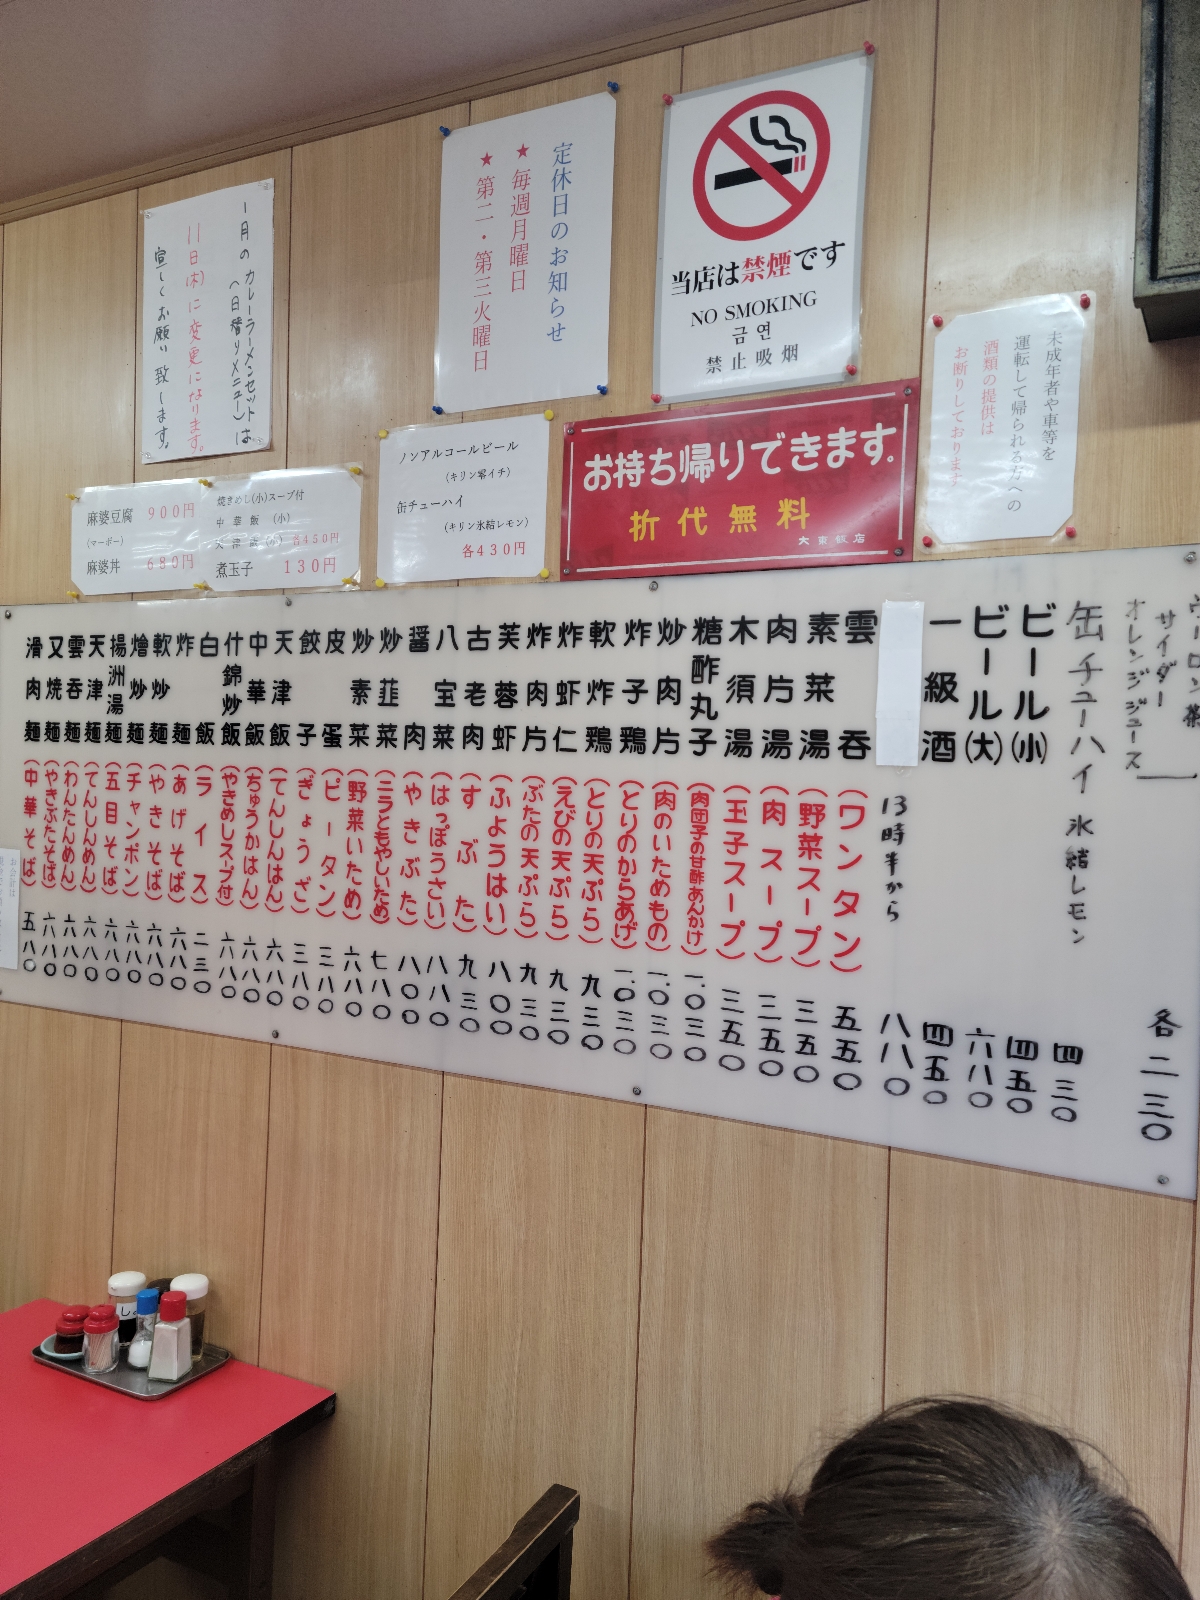 1月の カレーラーメンセットは
(日替りメニュー)
11日(木)に変更になります。
宜しくお願い致します。
定休日のお知らせ
★毎週月曜日
★第二・第三火曜日
当店は禁煙です
NO SMOKING
금연
禁止吸烟
未成年者や車等を
運転して帰られる方への
酒類の提供は
お断りしております
麻婆豆腐 900円
(マーボー)
麻婆丼 680円
焼きめし(小)スープ付
中華飯 (小)
天津飯 (小) 各450円
煮玉子 130円
ノンアルコールビール
(キリン零イチ)
缶チューハイ
(キリン氷結レモン)
各430円
お持ち帰りできます。
折代無料
大東飯店
ウーロン茶
サイダー
オレンジジュース
各二三〇
缶チューハイ 氷結レモン 四三〇
ビール(小) 四五〇
ビール(大) 六八〇
一級酒 四五〇
13時半から 八八〇
雲吞 (ワンタン) 五五〇
素菜湯 (野菜スープ) 三五〇
肉片湯 (肉スープ) 三五〇
木須湯 (玉子スープ) 三五〇
糖酢丸子 (肉団子の甘酢あんかけ) 一、〇三〇
炒肉片 (肉のいためもの) 一、〇三〇
炸子鶏 (とりのからあげ) 一、〇三〇
軟炸鶏 (とりの天ぷら) 九三〇
炸虾仁 (えびの天ぷら) 九三〇
炸肉片 (ぶたの天ぷら) 九三〇
芙蓉虾 (ふようはい) 八〇〇
古老肉 (すぶた) 九三〇
八宝菜 (はっぽうさい) 八八〇
醤肉 (やきぶた) 八〇〇
炒韮菜 (ニラともやしいため) 七八〇
炒素菜 (野菜いため) 六八〇
皮蛋 (ピータン) 三八〇
餃子 (ぎょうざ) 三八〇
天津飯 (てんしんはん) 六八〇
中華飯 (ちゅうかはん) 六八〇
什錦炒飯 (やきめしスープ付) 六八〇
白飯 (ライス) 二三〇
炸麺 (あげそば) 六八〇
軟炒麺 (やきそば) 六八〇
燴炒麺 (チャンポン) 六八〇
揚洲湯麺 (五目そば) 六八〇
天津麺 (てんしんめん) 六八〇
雲吞麺 (わんたんめん) 六八〇
叉焼麺 (やきぶたそば) 六八〇
滑肉麺 (中華そば) 五八〇